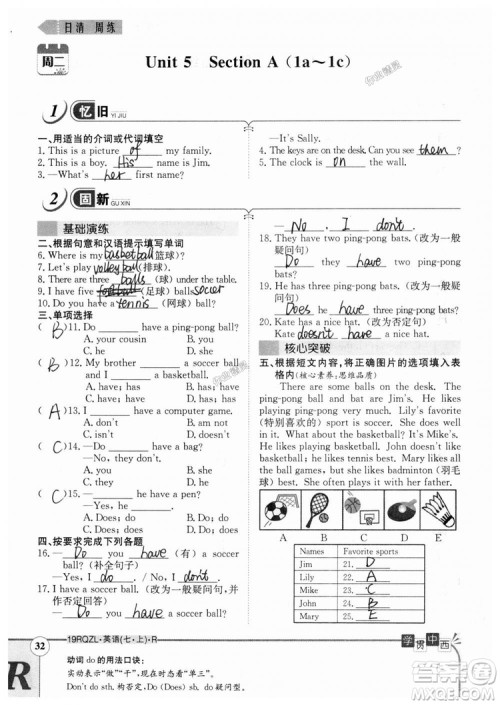 日清 周练
周二
Unit 5 Section A (1a～1c)
1 忆旧 YI JIU
一、用适当的介词或代词填空
1. This is a picture of my family.
2. This is a boy. His name is Jim.
3. —What's her first name?
—It's Sally.
4. The keys are on the desk. Can you see them?
5. The clock is on the wall.
2 固新 GU XIN
基础演练
二、根据句意和汉语提示填写单词
6. Where is my basketball(篮球)?
7. Let's play volleyball(排球).
8. There are three balls(球) under the table.
9. I have five footballs(足球).
10. Do you have a tennis(网球) ball?
三、单项选择
( B )11. Do ____ have a ping-pong ball?
A. your cousin B. you
C. he D. she
( B )12. My brother ____ a soccer ball and I ____ a basketball.
A. have; have B. has; have
C. has; has D. have; has
( A )13. I ____ have a computer game.
A. don't B. am not
C. doesn't D. not
( C )14. —____
—No, they don't.
A. Do you have a basketball?
B. Does he have a basketball?
C. Do they have a basketball?
( C )15. —____ he ____ a pen?
—Yes, he ____.
A. Does; do B. Do; does
C. Does; does
四、按要求完成下列各题
16. —Do you have (有) a soccer ball? (补全句子)
—Yes, I do. /No, I don't.
17. I have a soccer ball. (改为一般疑问句并作否定回答)
—Do you have a soccer ball?
—No, I don't.
18. They have two ping-pong bats. (改为一般疑问句)
Do they have two ping-pong bats?
19. He has three ping-pong bats. (改为一般疑问句)
Does he have three ping-pong bats?
20. Kate has a nice hat. (改为否定句)
Kate doesn't have a nice hat.
核心突破
五、根据短文内容,将正确图片的选项填入表格内(核心素养:思维品质)
There are some balls on the floor. The ping-pong ball and bat are Jim's. He likes playing ping-pong very much. Lily's favorite (特别喜欢的) sport is soccer. She can play it well. What about the basketball? It's Mike's. John doesn't like basketball; he likes tennis. Mary likes all the ball games, but she likes badminton (羽毛球) best. She often plays it with her father.
A B C D E
Names Favorite sports
Jim 21. D
Lily 22. A
Mike 23. C
John 24. E
Mary 25. B
32
19RQZL·英语(七·上)·R
动词 do 的用法口诀:
实动表示"做""干",现在时态看"单三"。
Don't do, 构否定, Do (Does) sb. do 疑问型。
学贯中西